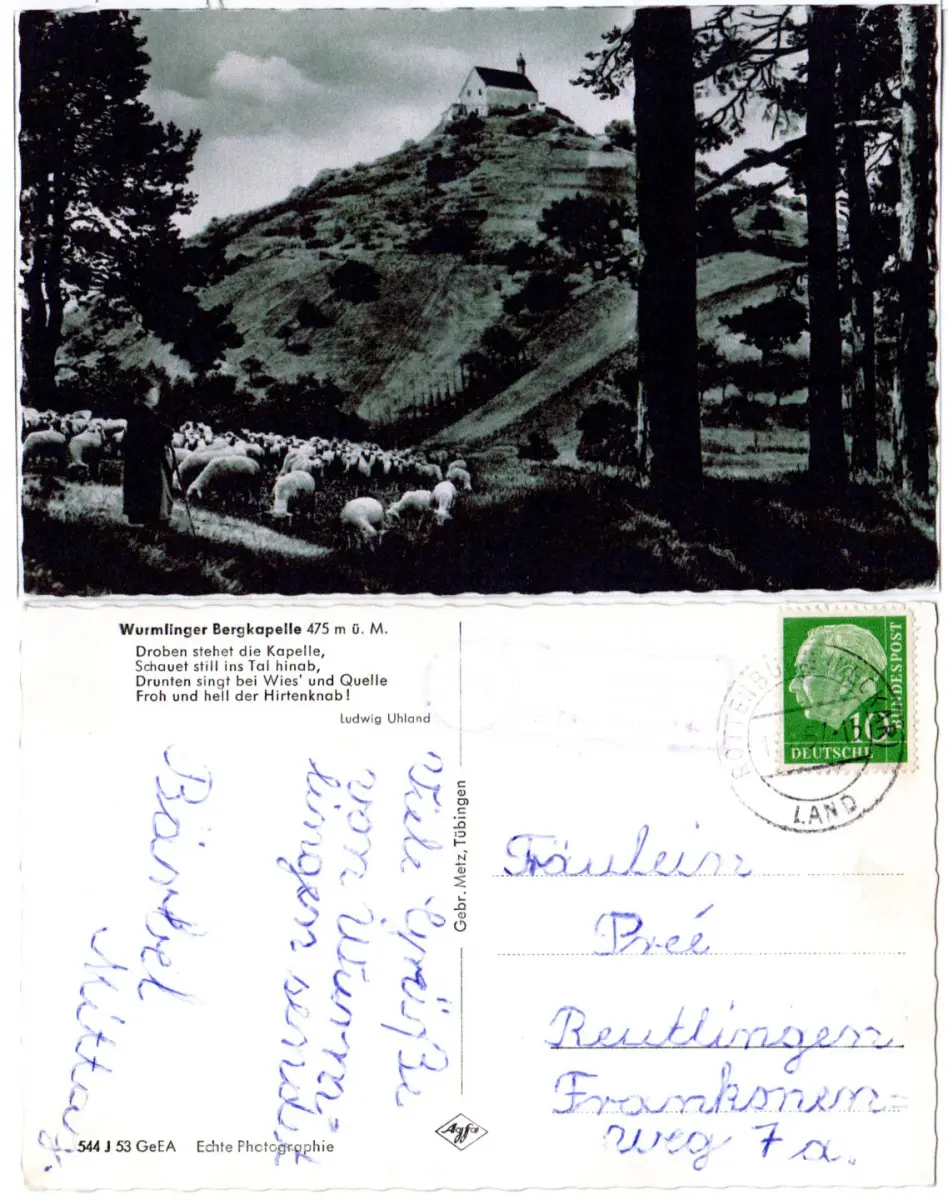 Wurmlinger Bergkapelle 475 m ü. M.
Droben stehet die Kapelle,
Schauet still ins Tal hinab,
Drunten singt bei Wies' und Quelle
Froh und hell der Hirtenknab!
Ludwig Uhland
Viele Grüße
von Wurm-
lingen sendet
Bärbel
Mittag.
544 J 53 GeEA Echte Photographie
Gebr. Metz, Tübingen
Agfa
ROTTENBURG (NECKAR)
LAND
DEUTSCHE
BUNDESPOST
10
Fräulein
Preé
Reutlingen
Frankonen=
weg 7a.